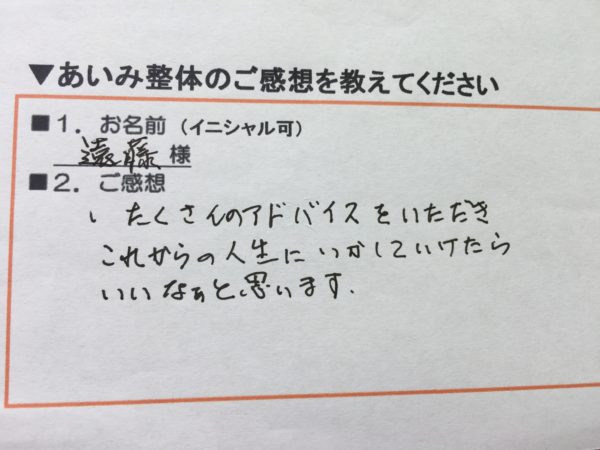 ▼あいみ整体のご感想を教えてください
■1．お名前（イニシャル可）
遠藤 様
■2．ご感想
、たくさんのアドバイスをいただき
これからの人生にいかしていけたら
いいなぁと思います.